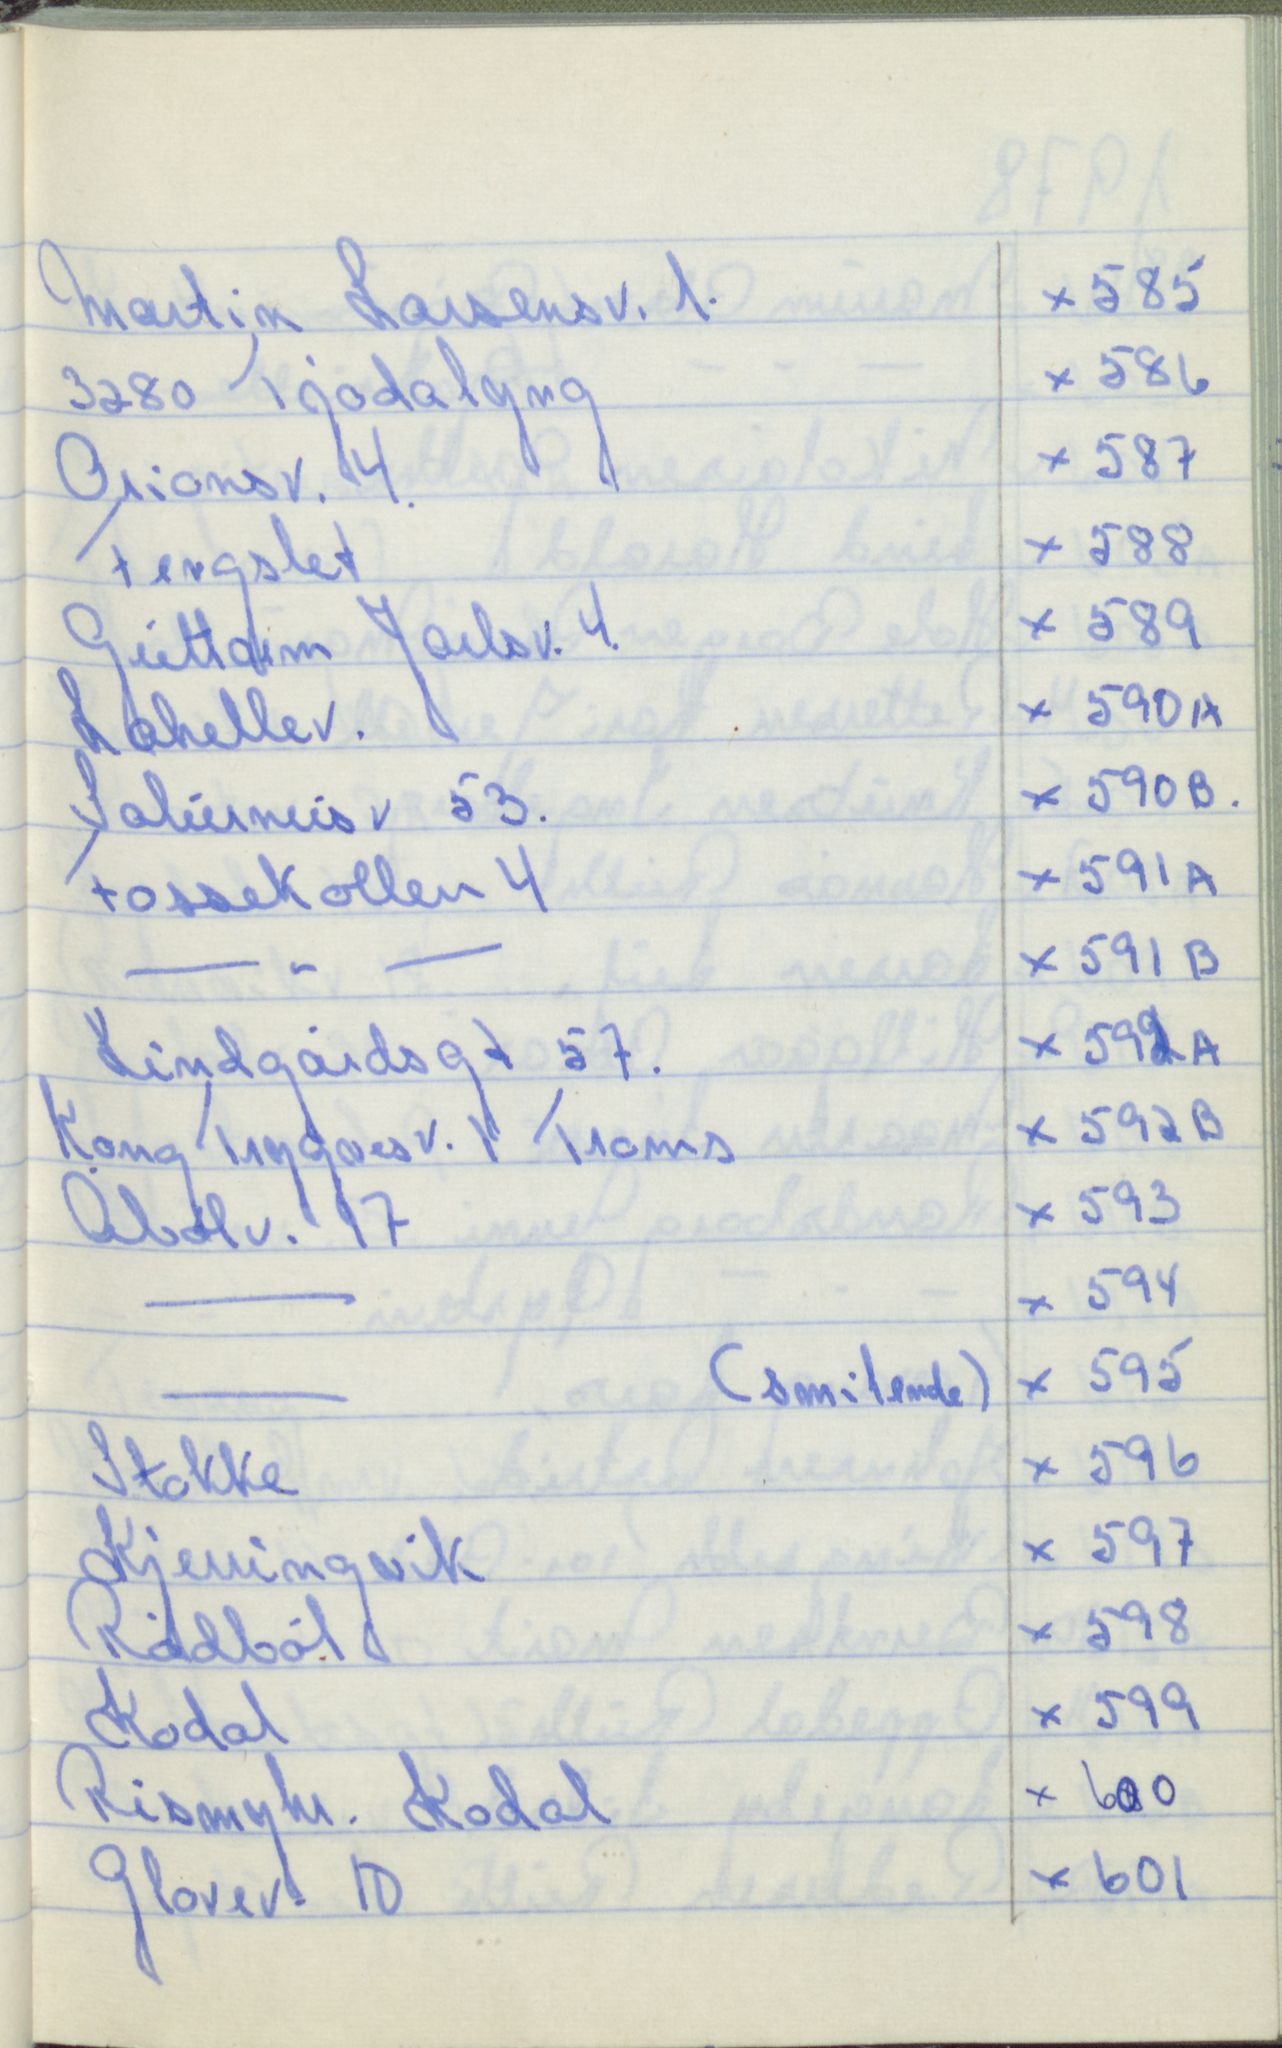 Martin Larsensv. 1. x 585
3280 Tjodalyng x 586
Orionsv. 4. x 587
Fengslet x 588
Guttorm Jarlsv. 4. x 589
Lahellev. x 590 A
Saturnusv 53. x 590 B.
Fossekollen 4 x 591 A
— " — x 591 B
Lindgårdsgt 57. x 592 A
Kong Trygvesv. 1 Troms x 592 B
Åbolv. 17 x 593
— x 594
— (smilende) x 595
Stokke x 596
Kjerringvik x 597
Rådbøl x 598
Kodal x 599
Rismyhr. Kodal x 600
Glovev. 10 x 601